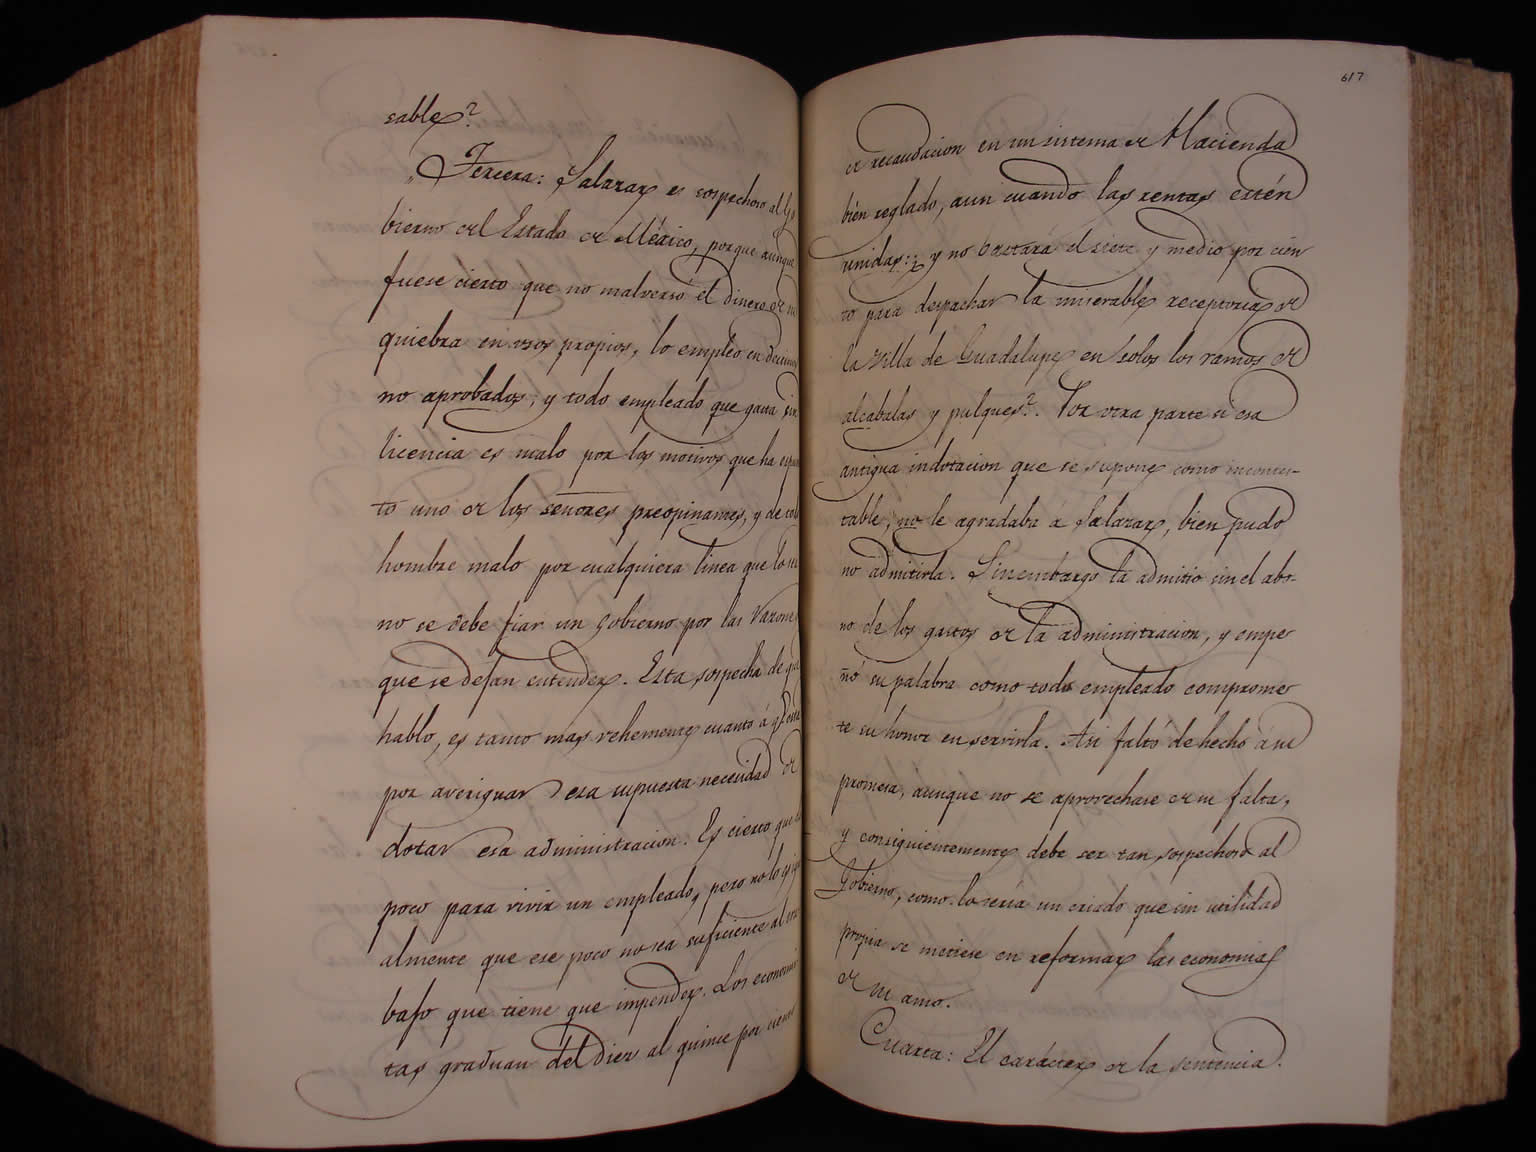 sable?
"Tercera: Salazar es sospechoso al Go
bierno del Estado de México, porque aunque
fuese cierto que no malversó el dinero de su
quiebra en usos propios, lo empleó en
no aprobados; y todo empleado que gasta sin
licencia es malo por los motivos que ha espues
to uno de los señores preopinantes, y de todo
hombre malo por cualquiera linea que lo sea
no se debe fiar un Gobierno por las razones
que se dejan entender. Esta sospecha de que
hablo, es tanto mas vehemente cuanto á q. está
por averiguar esa supuesta necesidad de
dotar esa administracion. Es cierto que es
poco para vivir un empleado, pero no lo es
almente que ese poco no sea suficiente al tra
bajo que tiene que impender. Los economis
tas graduan del diez al quince por ciento
617
de recaudacion en un sistema de Hacienda
bien reglado, aun cuando las rentas estén
unidas: ¿ y no bastará el siete y medio por cien
to para despachar la miserable receptoria de
la villa de Guadalupe en solos los ramos de
alcabalas y pulques?. Por otra parte si esa
antigua indotacion que se supone como incontes-
table, no le agradaba á Salazar, bien pudo
no admitirla. Sinembargo la admitio sin el abo-
no de los gastos de la administracion, y empe
ñó su palabra como todo empleado comprome
te su honor en servirla. Asi faltó de hecho á su
promesa, aunque no se aprovechase de su falta,
y consiguientemente debe ser tan sospechoso al
Gobierno, como lo sería un criado que sin utilidad
propia se metiese en reformar las economias
de su amo.
Cuarta: El carácter de la sentencia.